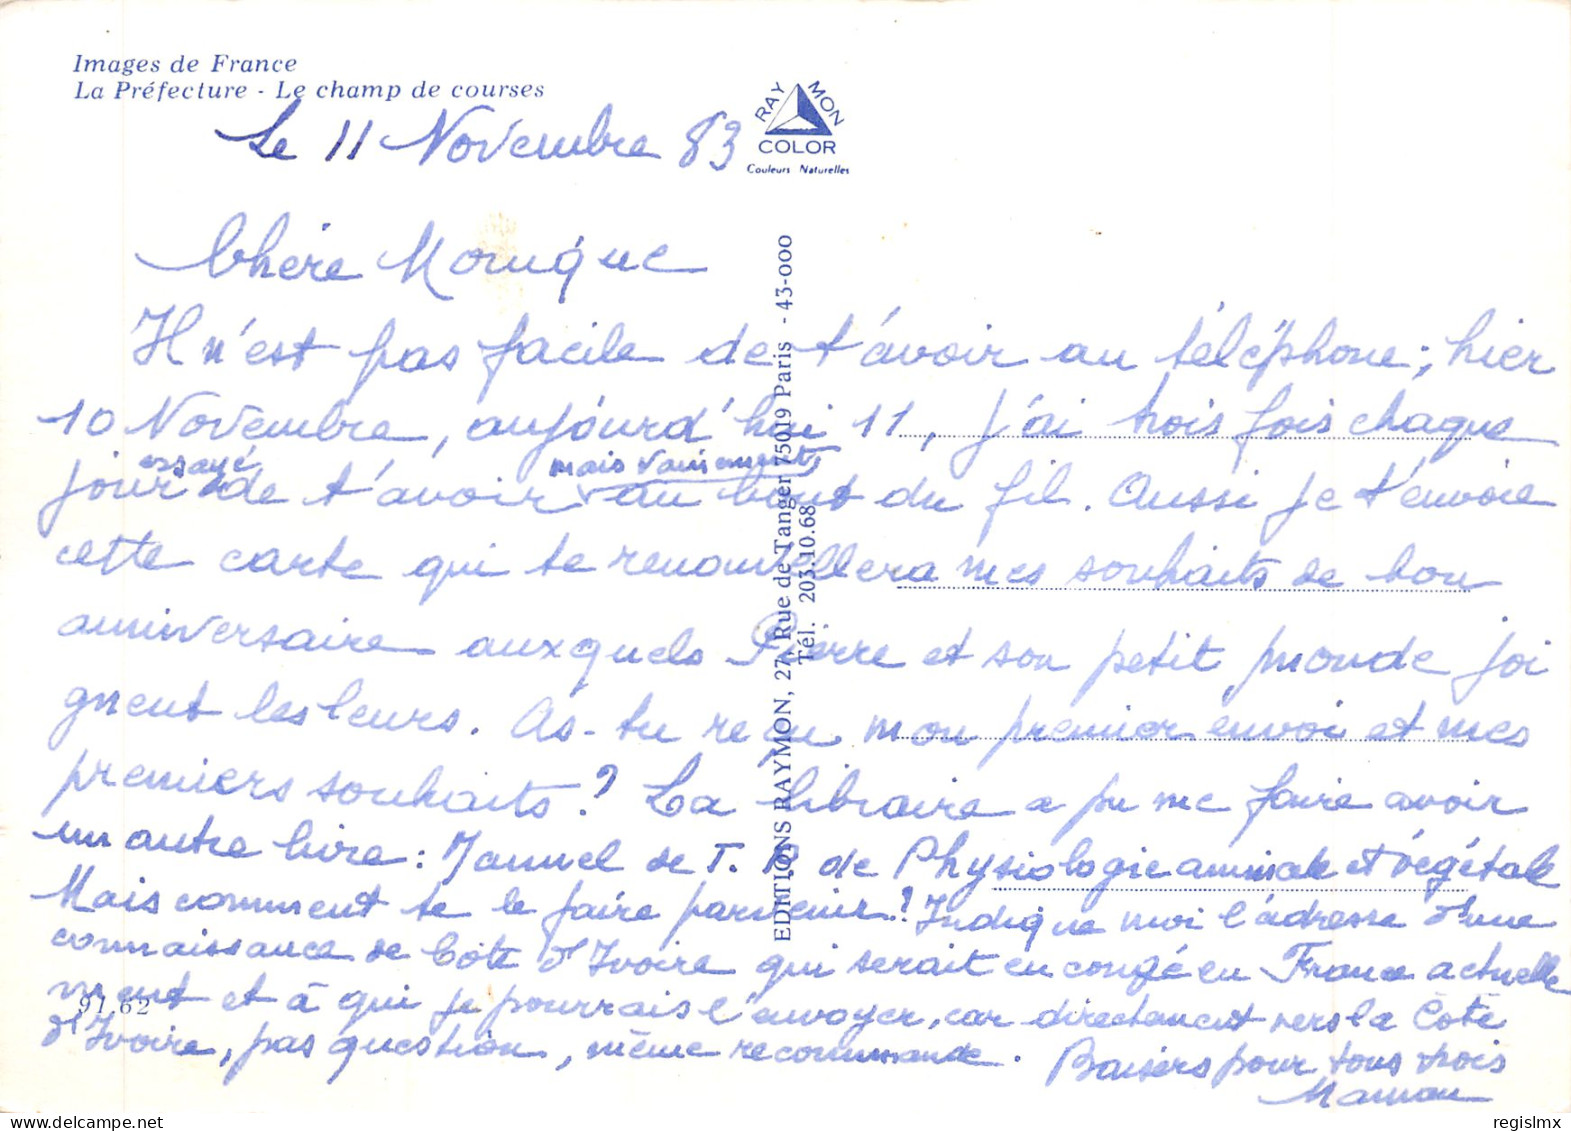 Images de France
La Préfecture - Le champ de courses
RAYMON
COLOR
Couleurs Naturelles
Le 11 Novembre 83
Chère Monique
Il n'est pas facile de t'avoir au téléphone; hier
10 Novembre, aujourd'hui 11, j'ai trois fois chaque
jour essayé de t'avoir mais vainement, au bout du fil. Aussi je t'envoie
cette carte qui te renouvellera mes souhaits de bon
anniversaire auxquels Pierre et son petit monde joi
gnent les leurs. As-tu reçu mon premier envoi et mes
premiers souhaits? La libraire a pu me faire avoir
un autre livre: Manuel de T.P de Physiologie animale et végétale
Mais comment te le faire parvenir? Indique moi l'adresse d'une
connaissance de Côte d'Ivoire qui serait en congé en France actuelle
ment et à qui je pourrais l'envoyer, car directement vers la Côte
d'Ivoire, pas question, même recommandé. Baisers pour tous trois
Maman
91.62
EDITIONS RAYMON, 27, Rue de Tanger 75019 Paris - 43-000
Tél. 203.10.68
regislmx